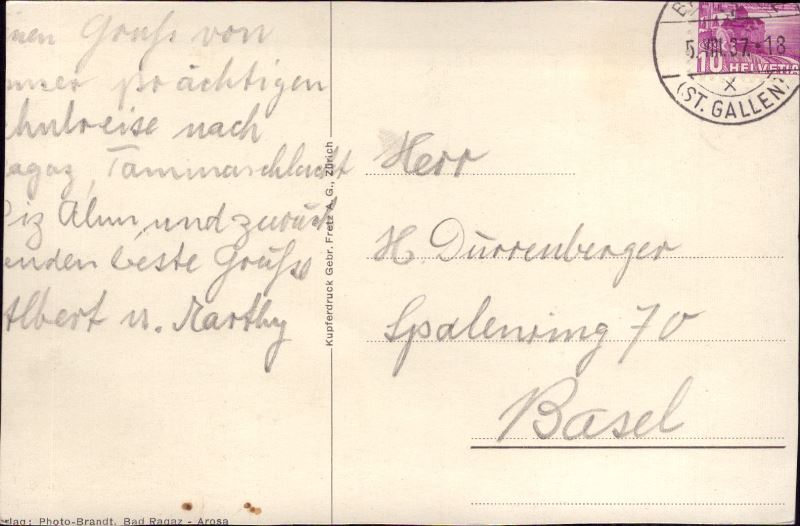 inen Gruß von
prächtigen
nach
agaz, Taminaschlucht
iz Alun, und zurück
enden beste Grüße
Albert u. Marthy
Kupferdruck Gebr. Fretz A. G., Zürich
5. VIII. 37.-18
(ST. GALLEN)
10 HELVETIA
Herr
H. Dürrenberger
Spalenring 70
Basel
rlag: Photo-Brandt, Bad Ragaz - Arosa